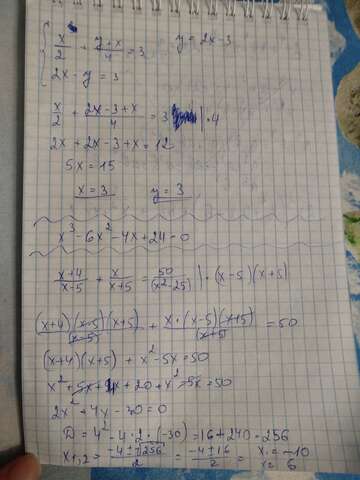 x/2 + (y+x)/4 = 3 y = 2x-3
2x - y = 3
x/2 + (2x-3+x)/4 = 3 | · 4
2x + 2x - 3 + x = 12
5x = 15
x = 3 y = 3
x³ - 6x² - 4x + 24 = 0
(x+4)/(x-5) + x/(x+5) = 50/(x²-25) | · (x-5)(x+5)
(x+4)(x-5)(x+5)/(x-5) + x·(x-5)(x+5)/(x+5) = 50
(x+4)(x+5) + x² - 5x = 50
x² + 5x + 4x + 20 + x² - 5x = 50
2x² + 4x - 30 = 0
D = 4² - 4·2·(-30) = 16 + 240 = 256
x1,2 = (-4 ± √256)/2 = (-4 ± 16)/2 = x = -10
x = 6